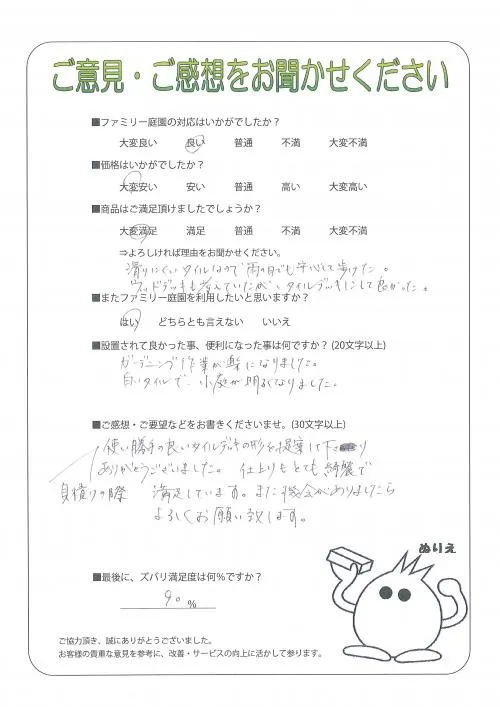 ご意見・ご感想をお聞かせください
■ファミリー庭園の対応はいかがでしたか？
大変良い 良い 普通 不満 大変不満
■価格はいかがでしたか？
大変安い 安い 普通 高い 大変高い
■商品はご満足頂けましたでしょうか？
大変満足 満足 普通 不満 大変不満
⇒よろしければ理由をお聞かせください。
滑りにくいタイルなので雨の日でも安心して歩けた。
ウッドデッキも考えていたが、タイルデッキにして良かった。
■またファミリー庭園を利用したいと思いますか？
はい どちらとも言えない いいえ
■設置されて良かった事、便利になった事は何ですか？(20文字以上)
ガーデニング作業が楽になりました。
白いタイルで、小庭が明るくなりました。
■ご感想・ご要望などをお書きくださいませ。(30文字以上)
使い勝手の良いタイルデッキの形を提案して下さり
ありがとうございました。 仕上りもとても綺麗で
見積りの際 満足しています。また機会がありましたら
よろしくお願い致します。
ぬりえ
■最後に、ズバリ満足度は何％ですか？
90 ％
ご協力頂き、誠にありがとうございました。
お客様の貴重な意見を参考に、改善・サービスの向上に活かして参ります。